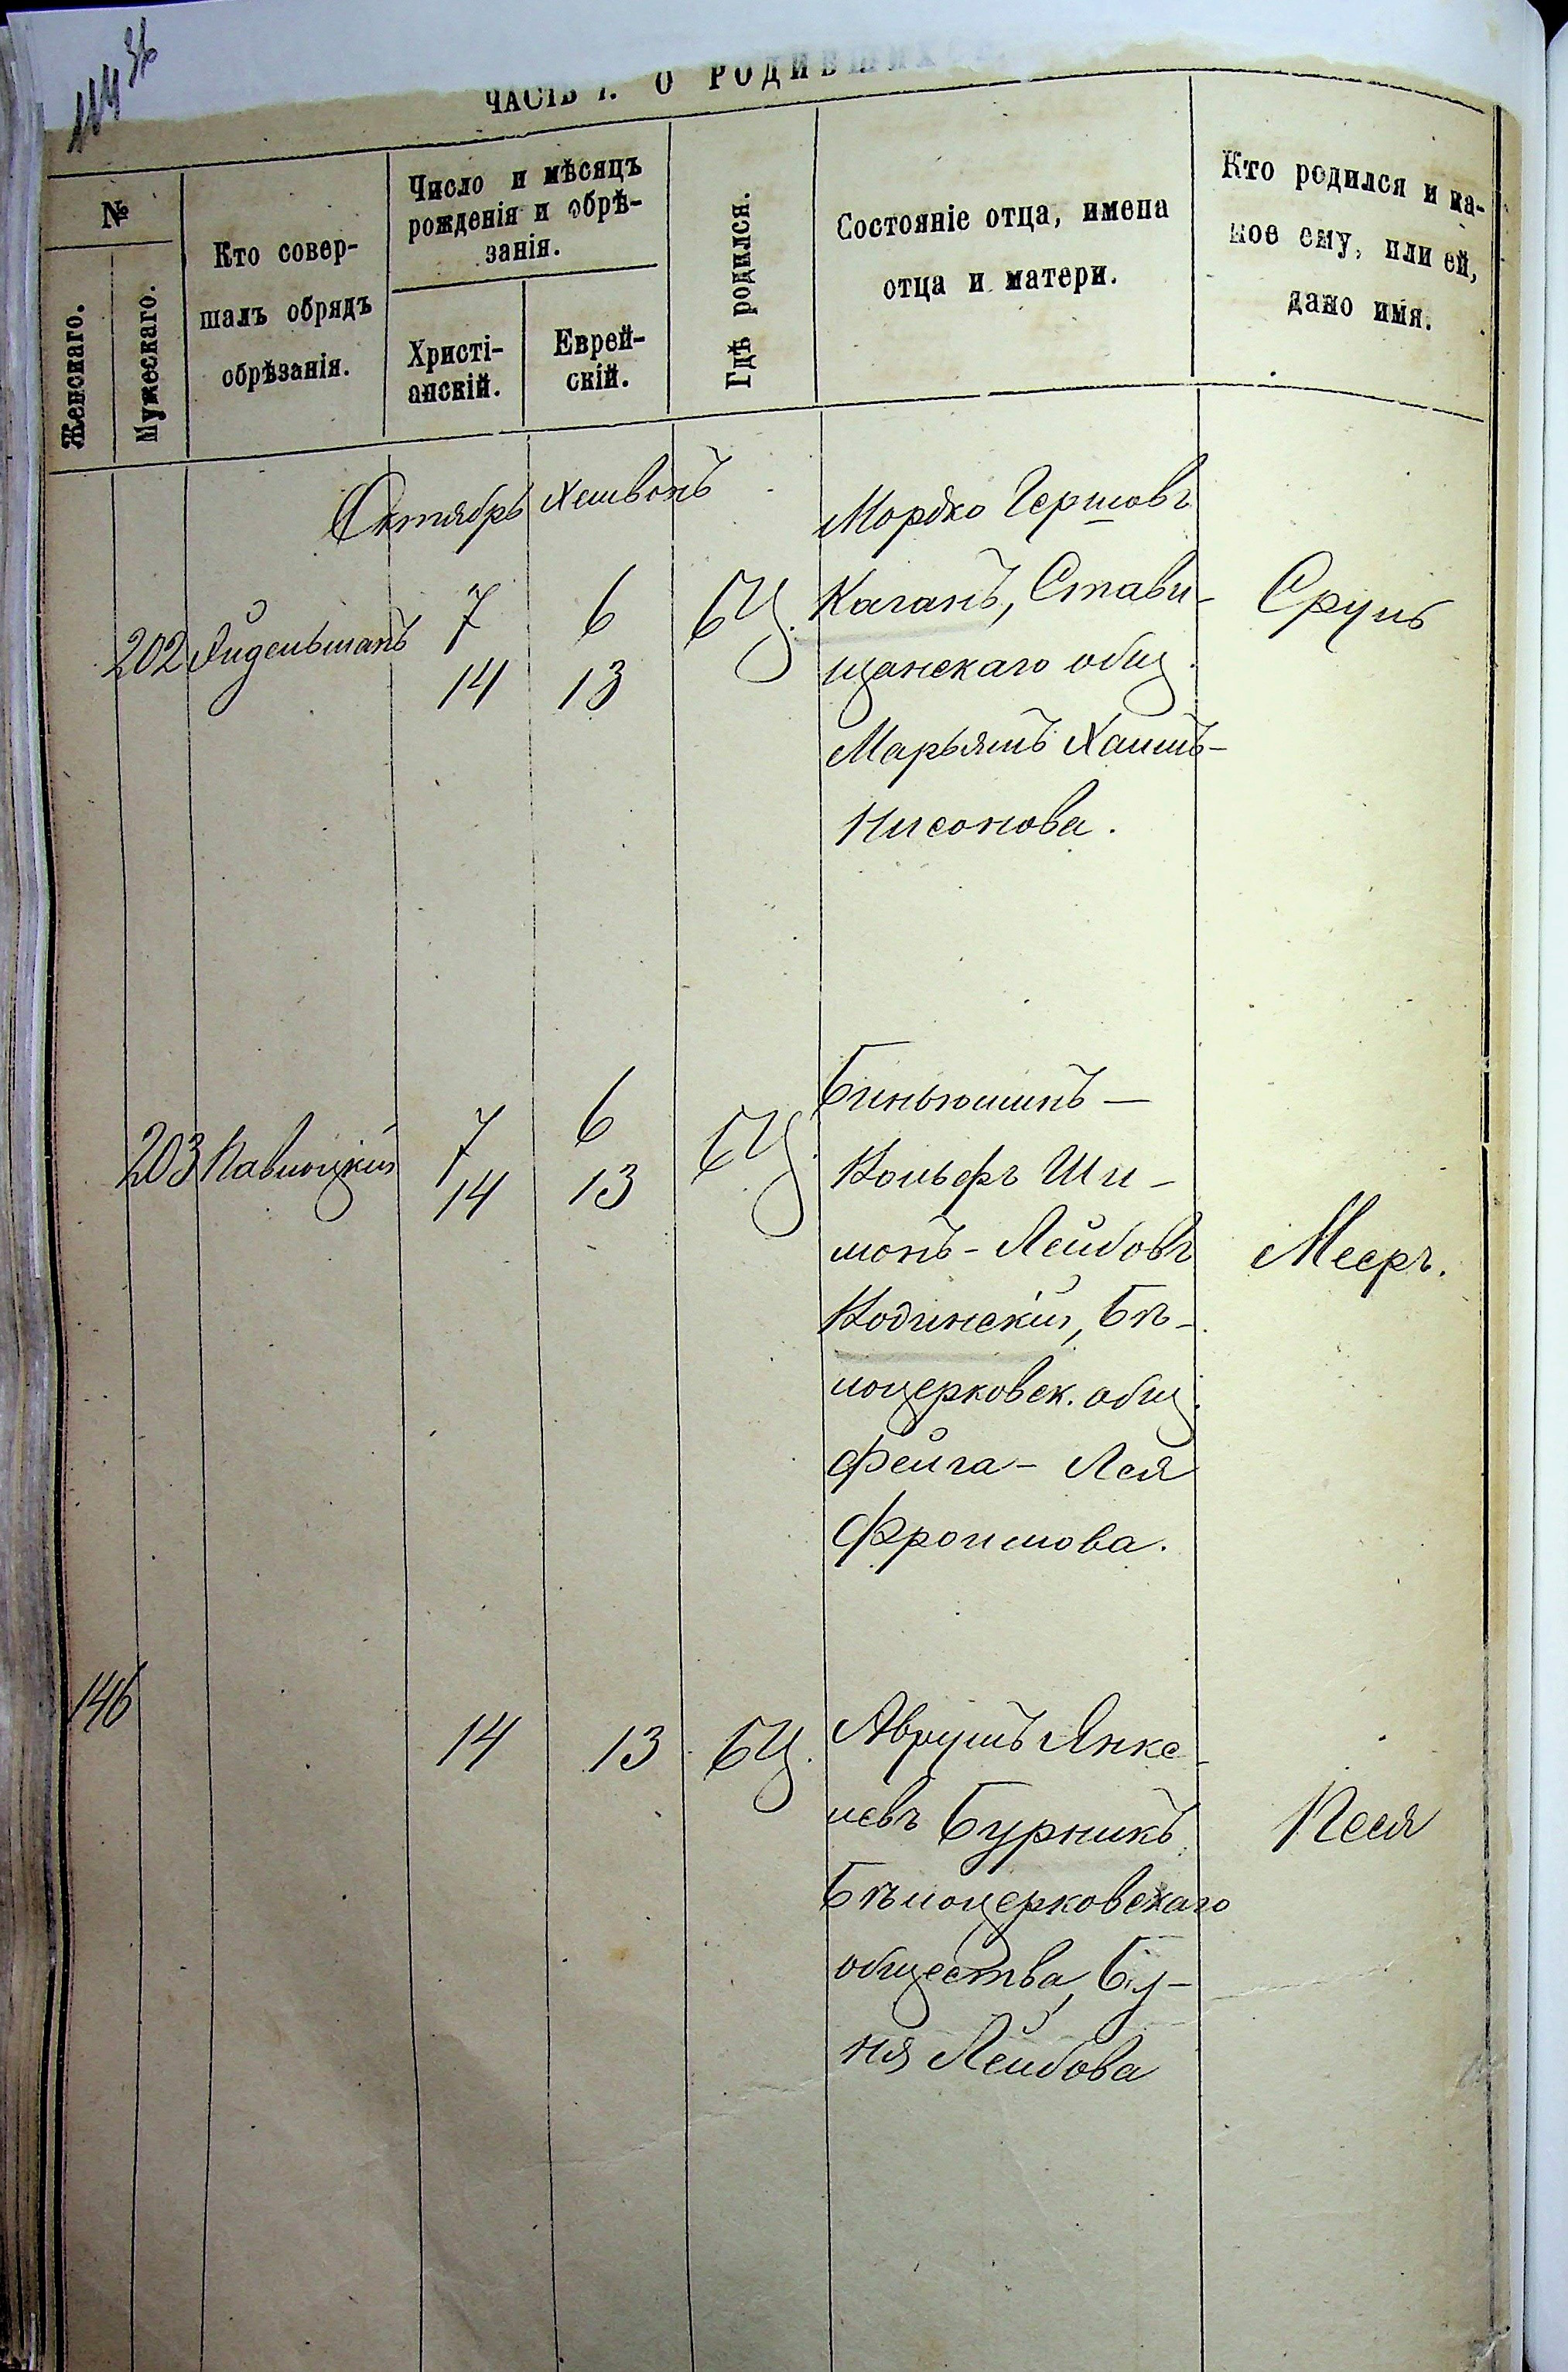 114 36
ЧАСТЬ I. О РОДИВШИХСЯ
№
Женскаго.
Мужескаго.
Кто совер-
шалъ обрядъ
обрѣзанія.
Число и мѣсяцъ
рожденія и обрѣ-
занія.
Христі-
анскій.
Еврей-
скій.
Гдѣ родился.
Состояніе отца, имена
отца и матери.
Кто родился и ка-
кое ему, или ей,
дано имя.
Октябрь Хешвонъ
202 7 6 БЦ.
14 13
Мордко Гершовъ
Каганъ, Стави-
щанскаго общ.
Марьямъ Хаимъ-
Нисонова.
Сруль
203 Павлоцкій 7 6 БЦ.
14 13
Биньюминъ-
Вольфъ Ши-
монъ-Лейбовъ
Бѣ-
лоцерковск. общ.
Фейга-Лея
Фроимова.
Мееръ.
146 14 13 БЦ.
Аврумъ Янке-
левъ Бурникъ
Бѣлоцерковскаго
общества, Бу-
ня Лейбова
Песя